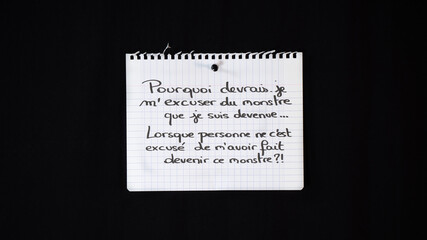 Pourquoi devrais-je
m'excuser du monstre
que je suis devenue...
Lorsque personne ne c'est
excusé de m'avoir fait
devenir ce monstre ?!